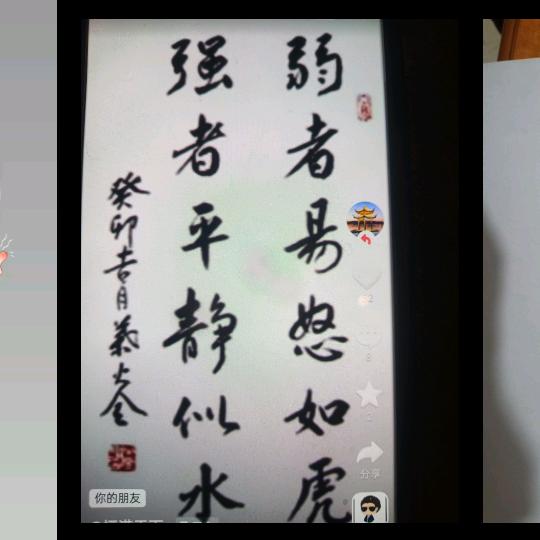 弱者易怒如虎
强者平静似水
癸卯吉月
你的朋友
分享